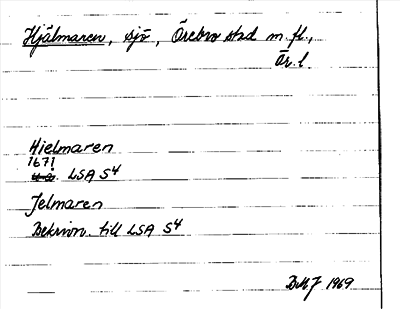 Hjälmaren, sjö, Örebro stad m.fl.,
Ör.l.
Hielmaren
1671
u.å. LSA S4
Jelmaren
Beskrivn. till LSA S4
BMJ 1969